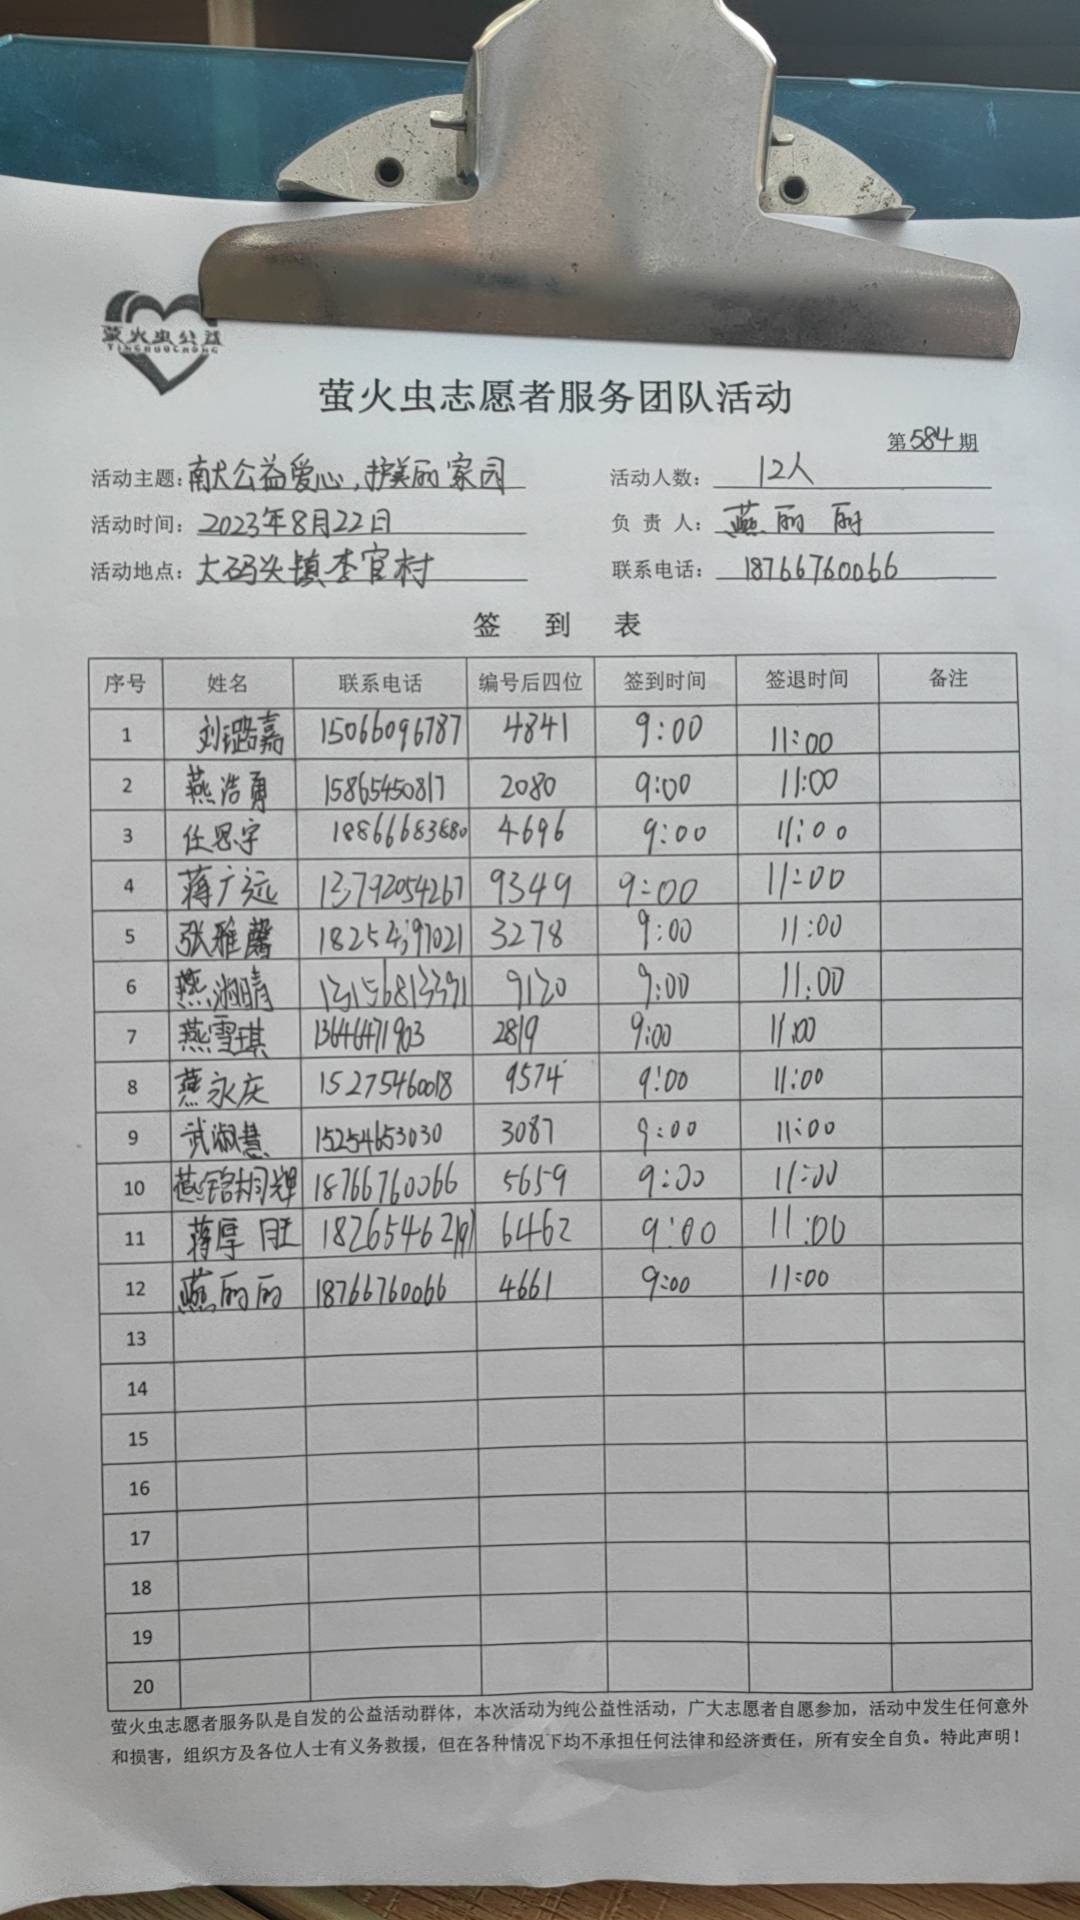 萤火虫公益
YINGHUOCHONG
萤火虫志愿者服务团队活动
第584期
活动主题：献公益爱心，护美丽家园 活动人数：12人
活动时间：2023年8月22日 负责人：燕丽丽
活动地点：大码头镇李官村 联系电话：18766760066
签到表
序号 姓名 联系电话 编号后四位 签到时间 签退时间 备注
1 刘璐嘉 15066096787 4841 9:00 11:00
2 燕浩勇 15865450817 2080 9:00 11:00
3 任思宇 18866683880 4696 9:00 11:00
4 蒋广远 13792054267 9349 9:00 11:00
5 张雅馨 18254597021 3278 9:00 11:00
6 燕淑晴 9120 9:00 11:00
7 燕雪琪 13646471903 2819 9:00 11:00
8 燕永庆 15275460018 9574 9:00 11:00
9 武淑慧 15254653030 3087 9:00 11:00
10 燕铭辉 18766760066 5659 9:00 11:00
11 蒋厚旺 18265462191 6462 9:00 11:00
12 燕丽丽 18766760066 4661 9:00 11:00
13
14
15
16
17
18
19
20
萤火虫志愿者服务队是自发的公益活动群体，本次活动为纯公益性活动，广大志愿者自愿参加，活动中发生任何意外
和损害，组织方及各位人士有义务救援，但在各种情况下均不承担任何法律和经济责任，所有安全自负。特此声明！